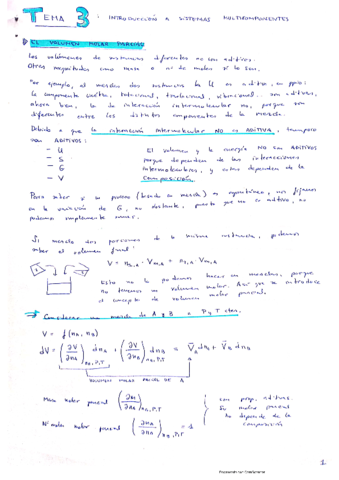 TEMA 3: INTRODUCCIÓN A SISTEMAS MULTICOMPONENTES
EL VOLUMEN MOLAR PARCIAL
Los volúmenes de sustancias diferentes no son aditivos.
Otras magnitudes como masa o nº de moles sí lo son.
Por ejemplo, al mezclar dos sustancias la U es aditiva, en ppio:
la componente electro, rotacional, traslacional, vibracional... son aditivas,
ahora bien, la de interacción intermolecular no, porque son
diferentes entre los distintos componentes de la mezcla.
Debido a que la interacción intermolecular NO es ADITIVA, tampoco
son ADITIVOS:
- U
- S
- G
- V
El volumen y la energía NO son ADITIVOS
porque dependen de las interacciones
intermoleculares, y estas dependen de la
composición.
Para saber si un proceso es espontáneo, nos fijamos
en la variación de G, no obstante, puesto que no es aditivo, no
podemos simplemente sumar.
Si mezclo dos porciones de la misma sustancia, podemos
saber el volumen final:
V = n₁,A · Vm,A + n₂,A · Vm,A
Esto no lo podemos hacer en mezclas, porque
no tenemos un volumen molar. Así que se introduce
el concepto de volumen molar parcial.
Considerar una mezcla de A y B a P y T ctes.
V = f(nA, nB)
dV = (∂V/∂nA)nB,P,T dnA + (∂V/∂nB)nA,P,T dnB = V̄A dnA + V̄B dnB
VOLUMEN MOLAR PARCIAL DE A
Masa molar parcial (∂m/∂nA)nB,P,T
Nº moles molar parcial (∂nA/∂nA)nB,P,T = 1
son prop. aditivas.
Su molar parcial
no depende de la
composición
1